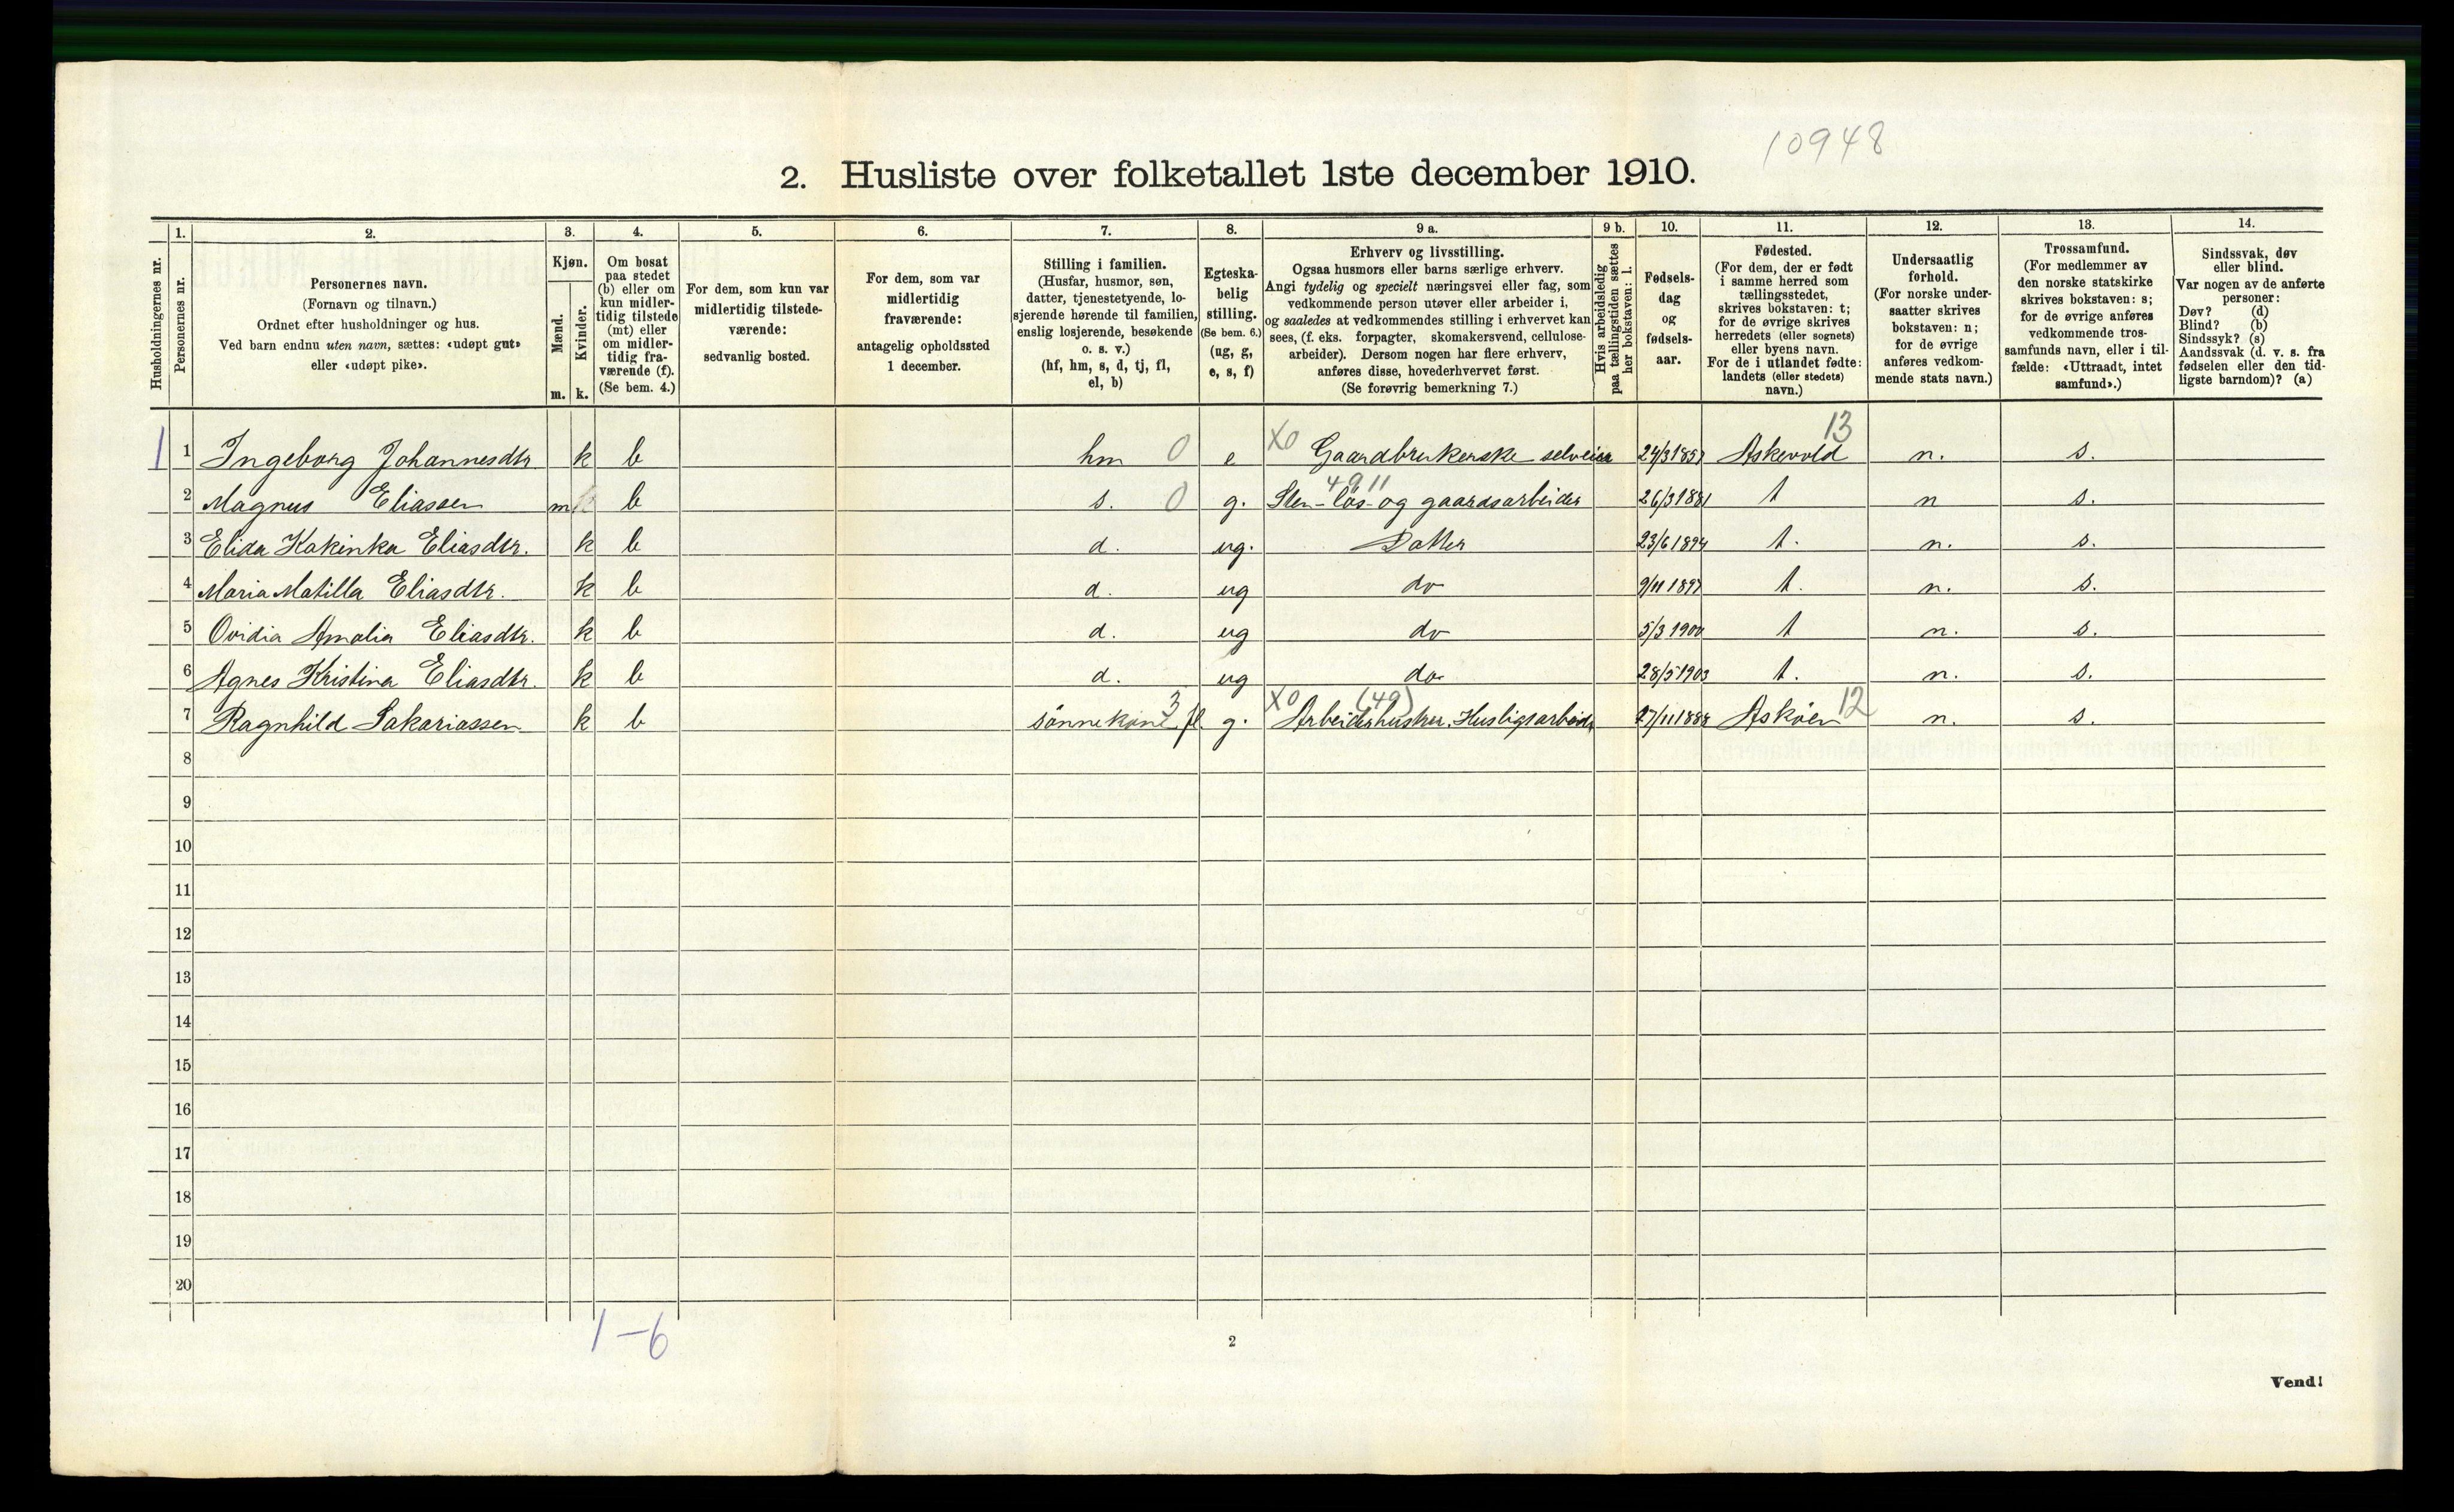 10948
2. Husliste over folketallet 1ste december 1910.
Husholdningernes nr.
1. Personernes nr.
2. Personernes navn.
(Fornavn og tilnavn.)
Ordnet efter husholdninger og hus.
Ved barn endnu uten navn, sættes: «udøpt gut»
eller «udøpt pike».
3. Kjøn.
Mænd. m.
Kvinder. k.
4. Om bosat
paa stedet
(b) eller om
kun midler-
tidig tilstede
(mt) eller
om midler-
tidig fra-
værende (f).
(Se bem. 4.)
5. For dem, som kun var
midlertidig tilstede-
værende:
sedvanlig bosted.
6. For dem, som var
midlertidig
fraværende:
antagelig opholdssted
1 december.
7. Stilling i familien.
(Husfar, husmor, søn,
datter, tjenestetyende, lo-
sjerende hørende til familien,
enslig losjerende, besøkende
o. s. v.)
(hf, hm, s, d, tj, fl,
el, b)
8. Egteska-
belig
stilling.
(Se bem. 6.)
(ug, g,
e, s, f)
9 a. Erhverv og livsstilling.
Ogsaa husmors eller barns særlige erhverv.
Angi tydelig og specielt næringsvei eller fag, som
vedkommende person utøver eller arbeider i,
og saaledes at vedkommendes stilling i erhvervet kan
sees, (f. eks. forpagter, skomakersvend, cellulose-
arbeider). Dersom nogen har flere erhverv,
anføres disse, hovederhvervet først.
(Se forøvrig bemerkning 7.)
9 b. Hvis arbeidsledig
paa tællingstiden sættes
her bokstaven: l.
10. Fødsels-
dag
og
fødsels-
aar.
11. Fødested.
(For dem, der er født
i samme herred som
tællingsstedet,
skrives bokstaven: t;
for de øvrige skrives
herredets (eller sognets)
eller byens navn.
For de i utlandet fødte:
landets (eller stedets)
navn.)
12. Undersaatlig
forhold.
(For norske under-
saatter skrives
bokstaven: n;
for de øvrige
anføres vedkom-
mende stats navn.)
13. Trossamfund.
(For medlemmer av
den norske statskirke
skrives bokstaven: s;
for de øvrige anføres
vedkommende tros-
samfunds navn, eller i til-
fælde: «Uttraadt, intet
samfund».)
14. Sindssvak, døv
eller blind.
Var nogen av de anførte
personer:
Døv? (d)
Blind? (b)
Sindssyk? (s)
Aandssvak (d. v. s. fra
fødselen eller den tid-
ligste barndom)? (a)
1 1 Ingeborg Johannesdtr k b hm 0 e X0 Gaardbrukerske selveier Askevold 13 n. s.
2 Magnus Eliassen m b s. 0 g. 4911 Sten-las- og gaardsarbeider 26/3 1881 t n s.
3 Elida Kakinka Eliasdtr. k b d. ug. Datter 23/6 1894 t. n. s.
4 Maria Matilla Eliasdtr. k b d. ug do 9/11 1897 t. n. s.
5 Ovidia Amalia Eliasdtr. k b d. ug do 5/3 1900 t n. s.
6 Agnes Kristina Eliasdtr. k b d. ug do 28/5 1903 t. n. s.
7 Ragnhild Sakariassen k b sønnekone fl 3 g. X0 (49) Arbeiderhustru. Husligtarbeide 27/11 1888 Askøen 12 n. s.
8
9
10
11
12
13
14
15
16
17
18
19
20
1-6
2
Vend!